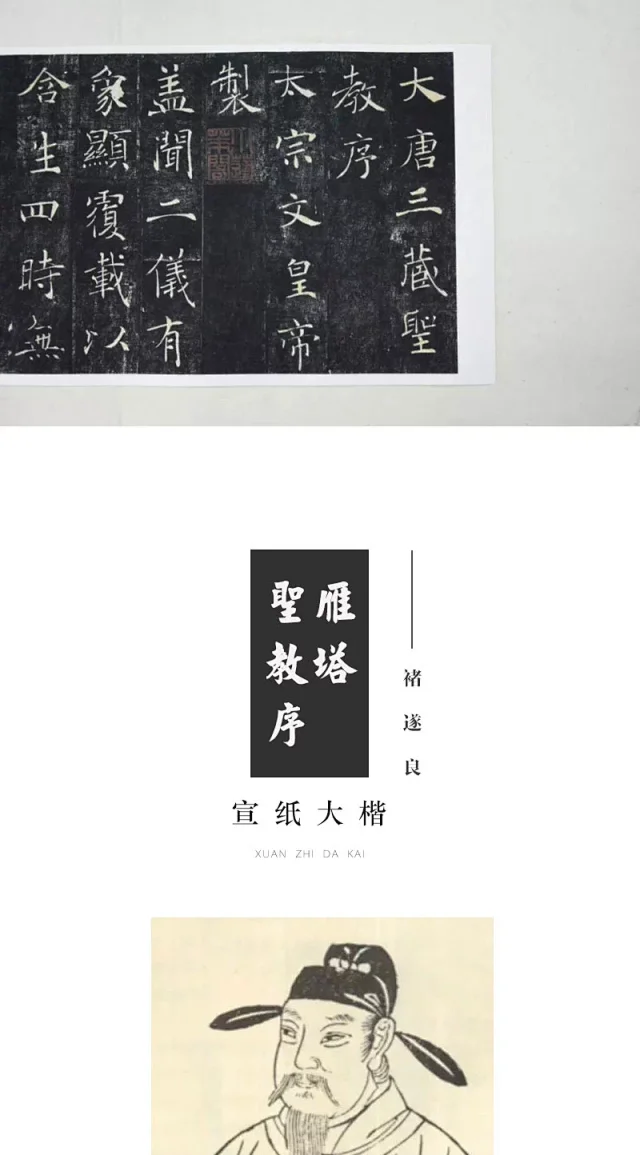 大唐三藏聖
教序
太宗文皇帝
製
盖聞二儀有
象顯覆載以
含生四時無
雁塔
聖教序
褚遂良
宣纸大楷
XUAN ZHI DA KAI